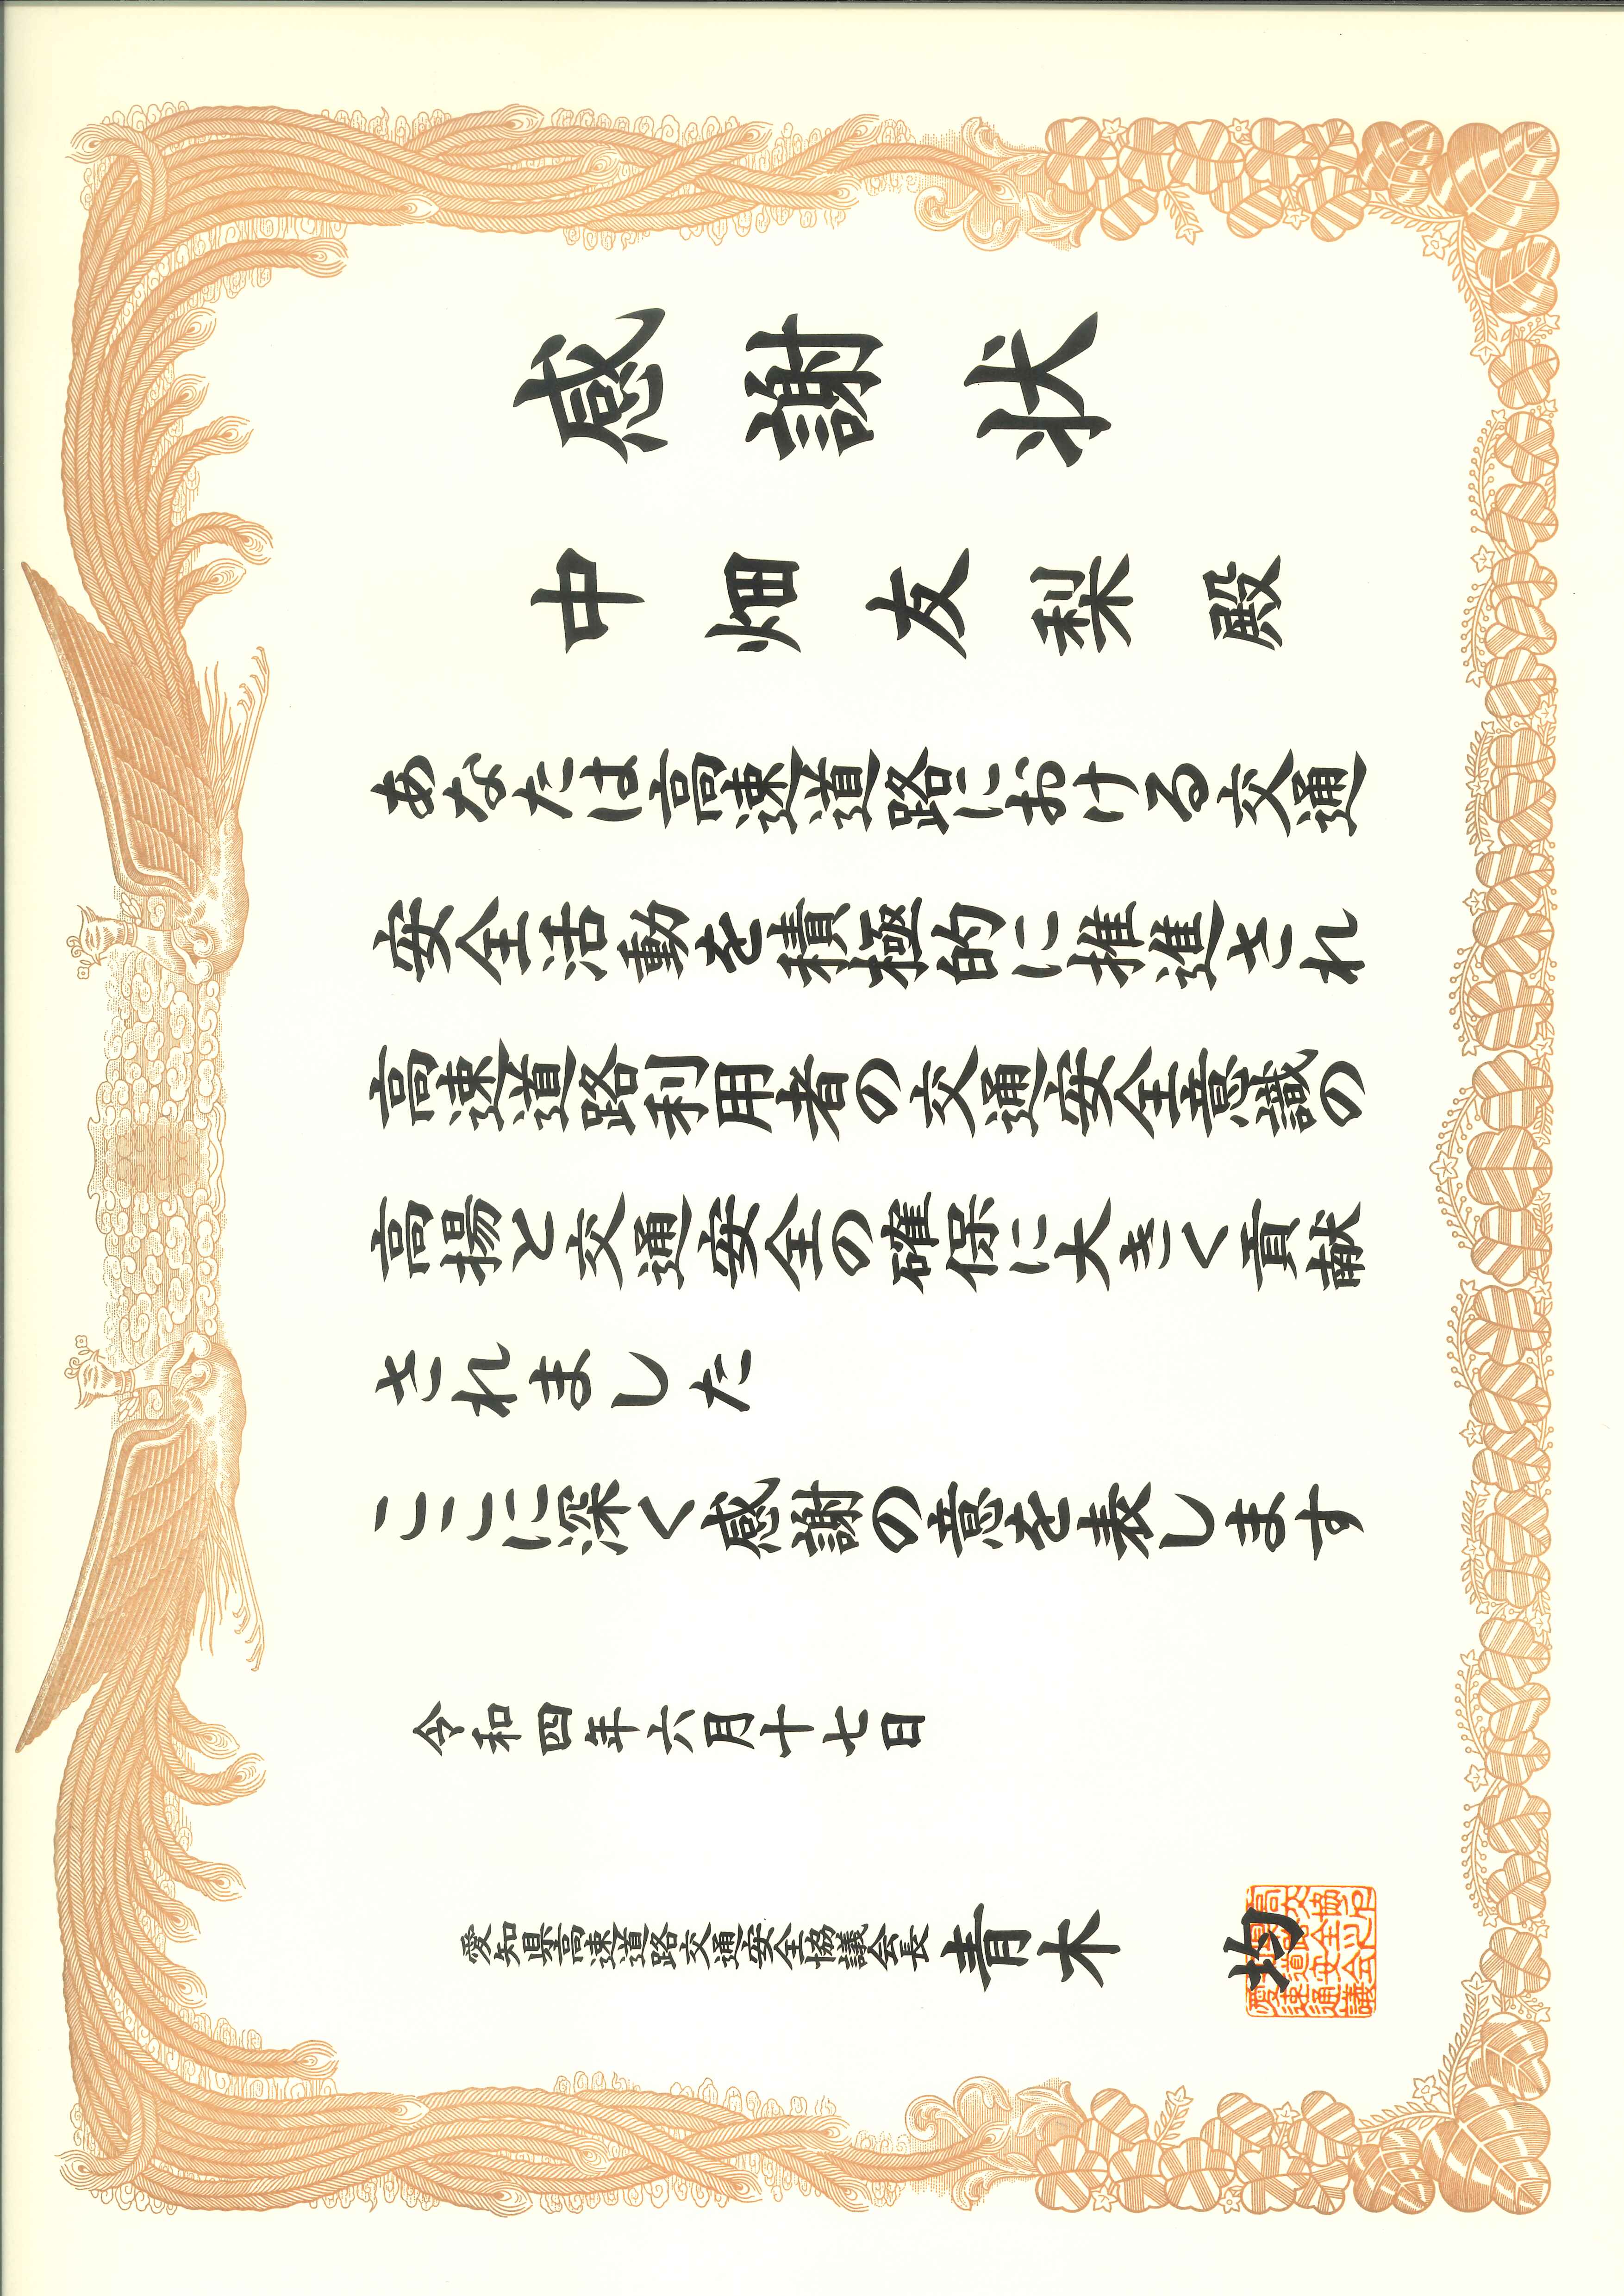 感謝状
中畑友梨殿
あなたは高速道路における交通
安全活動を積極的に推進され
高速道路利用者の交通安全意識の
高揚と交通安全の確保に大きく貢献
されました
ここに深く感謝の意を表します
令和四年六月十七日
愛知県高速道路交通安全協議会長 青木 均